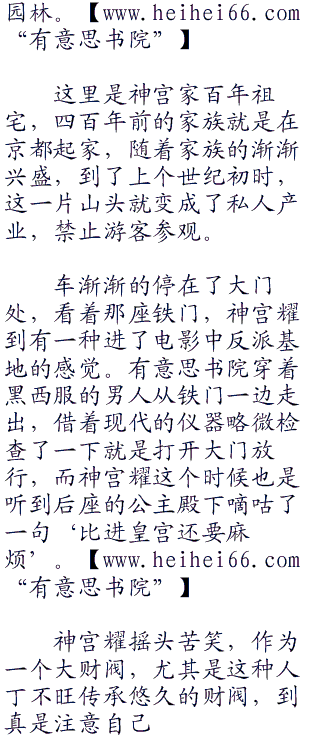 园林。【www.heihei66.com
“有意思书院”】
　　这里是神宫家百年祖
宅，四百年前的家族就是在
京都起家，随着家族的渐渐
兴盛，到了上个世纪初时，
这一片山头就变成了私人产
业，禁止游客参观。
　　车渐渐的停在了大门
处，看着那座铁门，神宫耀
到有一种进了电影中反派基
地的感觉。有意思书院穿着
黑西服的男人从铁门一边走
出，借着现代的仪器略微检
查了一下就是打开大门放
行，而神宫耀这个时候也是
听到后座的公主殿下嘀咕了
一句‘比进皇宫还要麻
烦’。【www.heihei66.com
“有意思书院”】
　　神宫耀摇头苦笑，作为
一个大财阀，尤其是这种人
丁不旺传承悠久的财阀，到
真是注意自己